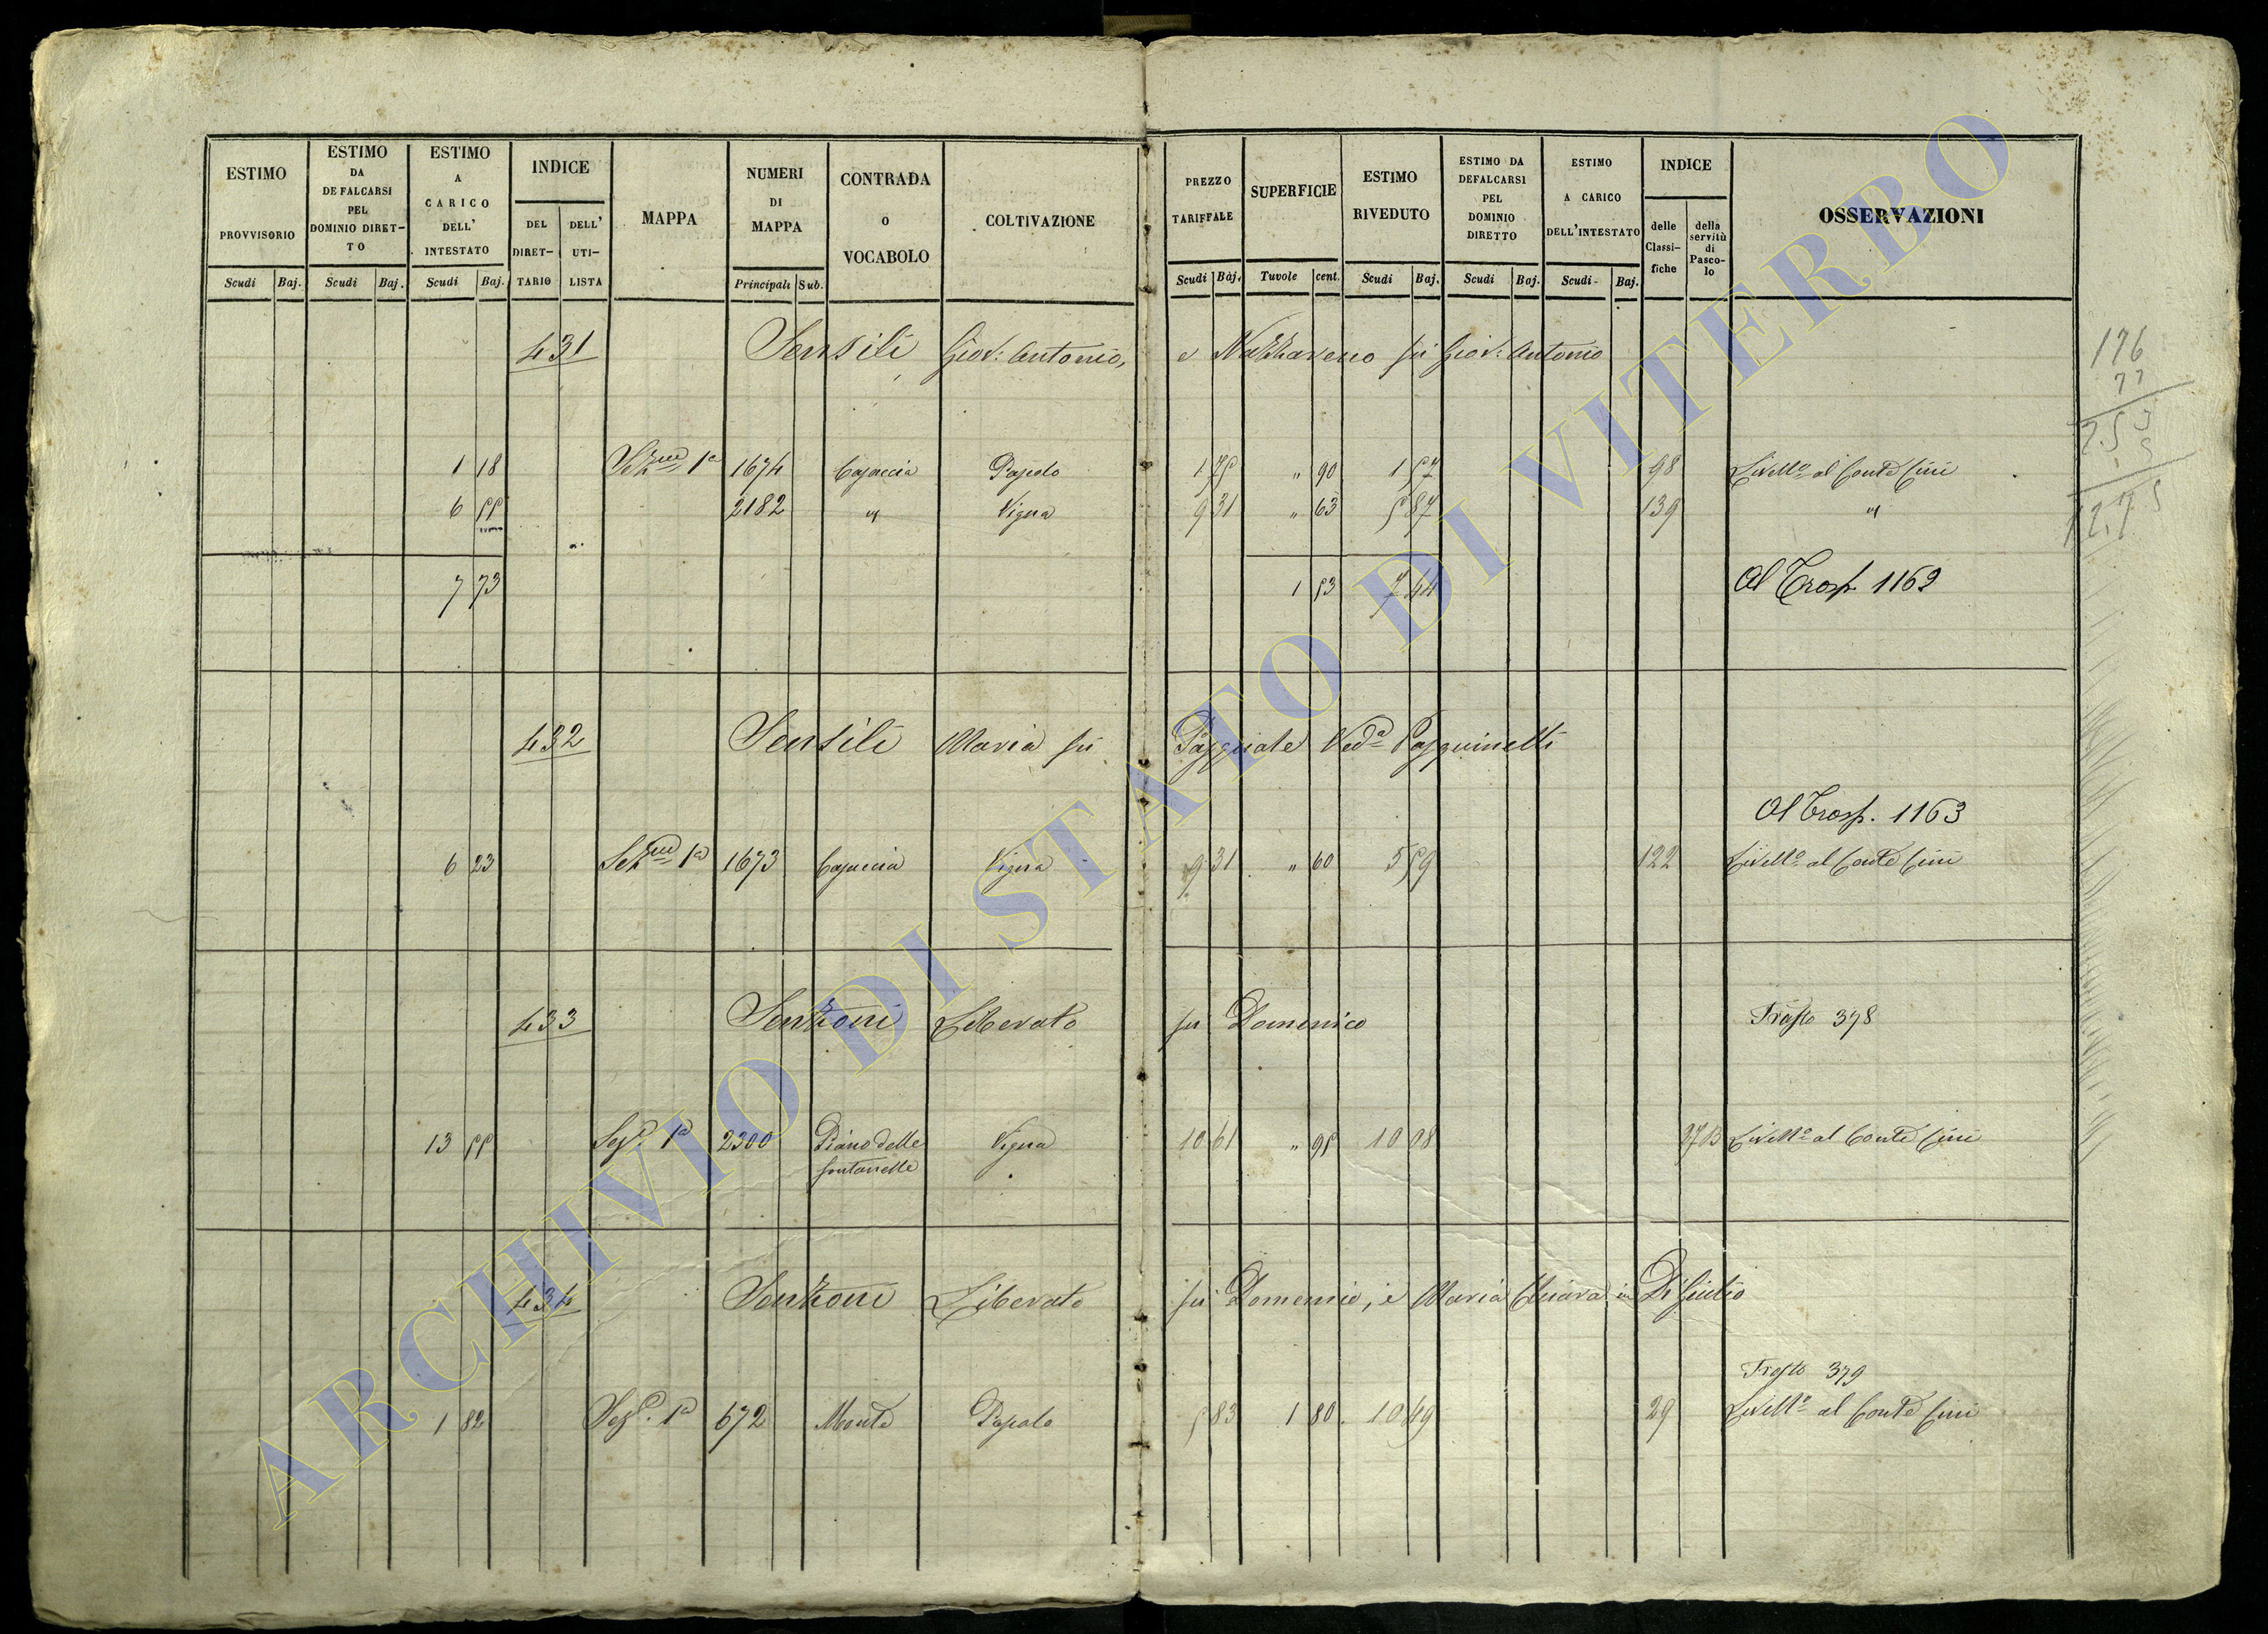 ESTIMO PROVVISORIO Scudi Baj.
ESTIMO DA DEFALCARSI PEL DOMINIO DIRET-TO Scudi Baj.
ESTIMO A CARICO DELL' INTESTATO Scudi Baj.
INDICE DEL DIRET-TARIO DELL' UTI-LISTA
MAPPA
NUMERI DI MAPPA Principali Sub.
CONTRADA o VOCABOLO
COLTIVAZIONE
PREZZO TARIFFALE Scudi Baj.
SUPERFICIE Tavole cent.
ESTIMO RIVEDUTO Scudi Baj.
ESTIMO DA DEFALCARSI PEL DOMINIO DIRETTO Scudi Baj.
ESTIMO A CARICO DELL'INTESTATO Scudi Baj.
INDICE delle Classi-fiche della servitù di Pasco-lo
OSSERVAZIONI
431 Sensili Giov: Antonio, e Nazzareno fu Giov: Antonio
176
77
253
1 18 Sezne 1a 1674 Cajaccia Pascolo 1 75 " 90 1 57 98 Livello al Conte Cini
6 55 2182 " Vigna 9 31 " 63 5 87 139 "
7 73 1 53 7 44 Al Trasp. 1162
432 Sensili Maria fu Pasquale Veda Pasquinelli
Al Trasp. 1163
6 23 Sezne 1a 1673 Cajaccia Vigna 9 31 " 60 5 59 122 Livello al Conte Cini
433 Senzoni Liberato fu Domenico Traspto 378
13 55 Seze 1a 2300 Piano delle Vigna 10 61 " 95 10 08 Livello al Conte Cini
fontanelle
434 Senzoni Liberato fu Domenico, e Maria Chiara in Di Giulio
Traspto 379
1 82 Seze 1a 672 Monte Pascolo 5 83 1 80 10 49 29 Livello al Conte Cini
ARCHIVIO DI STATO DI VITERBO